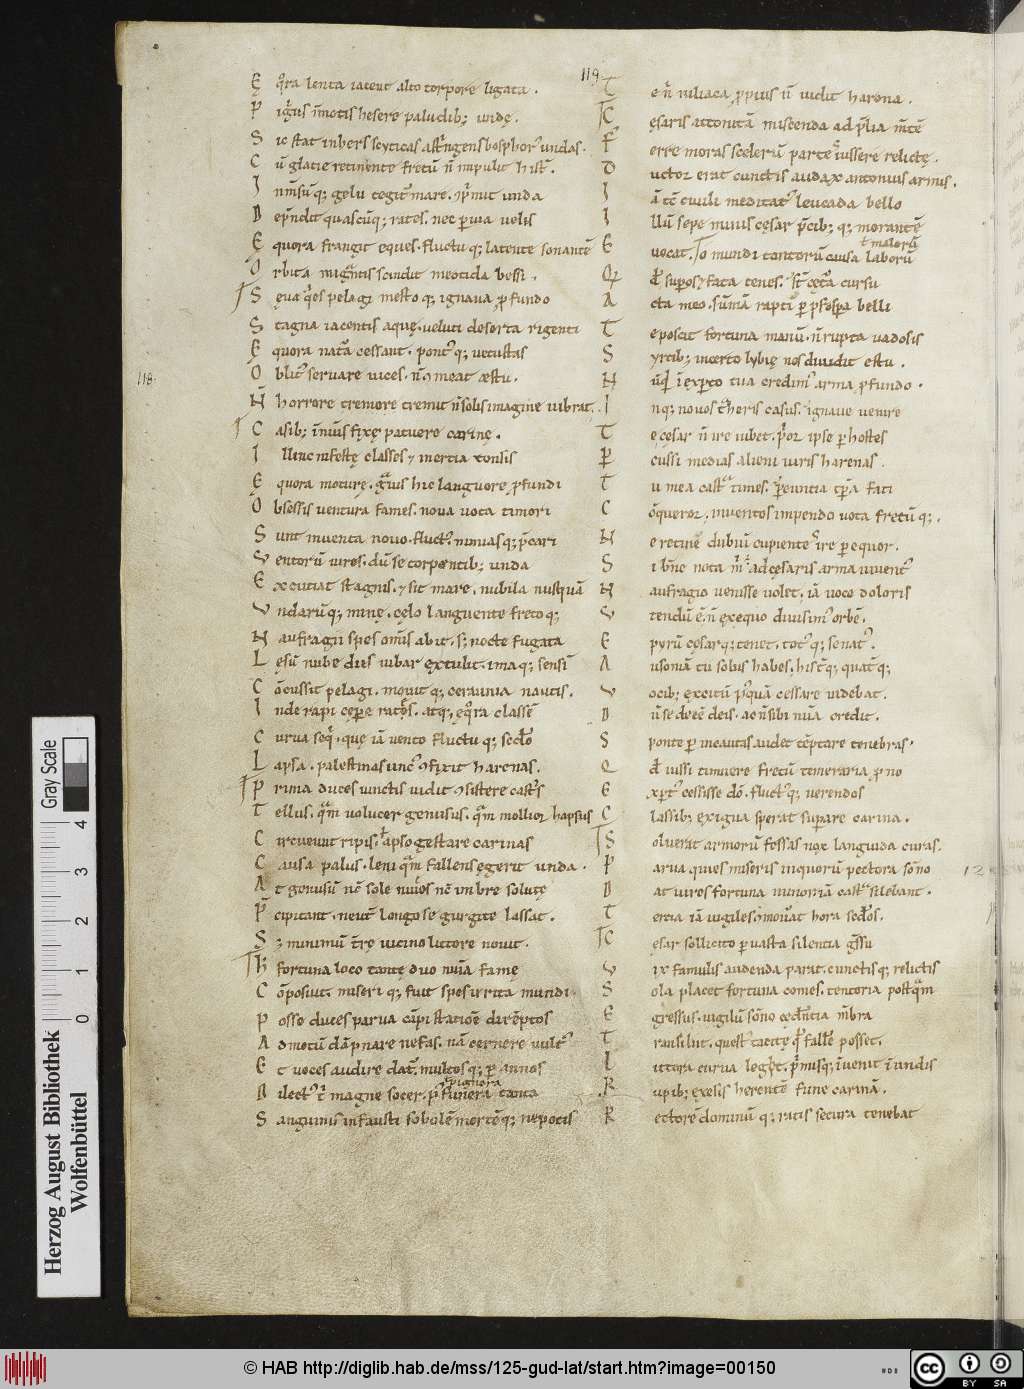 119
118.
Ę q̊ra lenta iacent alto torpore ligata .
P ig̊us īmotis hesere paludib; undę .
S ic stat inhers scyticas ast̄ngens bosphor᾽ undas .
C ū glacie retinente fretū n̄ impulit hist᾽ .
I nm̄sūq; gelu tegit᾽ mare . ip̄mit unda
D ep̄ndit quascūq; rates . nec ꝑuia uelis
Ę quora frangit eques . fluctuq; latente sonantē
O rbita migᷓntis scindit meotida bessi .
S ęua q̇es pelagi męstoq; ignaua ꝓfundo
S tagna iacentis aquę . ueluti deserta rigenti
Ę quora natᷓa cessant . pont᾽q; uetustas
O blit᾽ seruare uices . n̄ ꝯmeat ęstu .
N̄ horrore tremit n̄ solis imagine uibrat .
C asib; īnum̄is fixę patuere carinę .
I llinc infestę classes ⁊ inertia tonsis
Ę quora moturę . gᷓuis hic languore ꝓfundi
O bsessis uentura fames . noua uota timori
S unt inuenta nouo . fluct᾽ nimiasq; p̄cari
V entorū uires . dū se torpentib; unda
E xcutiat stagnis . ⁊ sit mare . nubila nusquā
V ndarūq; minę . cęlo languente fretoq;
N aufragii spes om̄is abit . s; nocte fugata
L ęsū nube dies iubar extulit . imaq; sensī
C ōcussit pelagi . mouitq; ceraunia nautis .
I nde rapi cępere rates . atq; ęq̊ra classē
C urua seqͥ . quę iā uento fluctuq; sec̄do
L apsa . palestinas unc᾽ ꝯfixit harenas .
P rima duces iunctis uidit ꝯsistere castͥs
T ellus . quā uolucer genusus . quā mollior hapsus
C ircueunt ripis . apso gestare carinas
C ausa palus . leni quā fallens ęgerit unda .
A t genusū nc̄ sole niues nc̄ imbre solutę
P̄ cipitant . neut᾽ longo se gurgite lassat .
S ; minimū t̄rę uicino littore nouit .
H̄ fortuna loco tantę duo noīa famę
C ōposuit . miseriq; fuit spes irrita mundi .
P osse duces parua cāpi statione dirēptos
A dmotū dāpnare nefas . nā cernere uult᾽
E t uoces audire dat᾽ . multosq; ꝑ annos
D ilect᾽ t̄ magne socer . p᾽ funera tanta
ł pignora
S anguinis infausti sobolē mortēq; nepotis
T e n̄ niliaca ꝓpius n̄ uidit harena .
C ęsaris attonitā miscenda ad p̄lia m̄tē
F erre moras scelerū parte iussere relictę .
D uctor erat cunctis audax antonius armis .
I ā tc̄ ciuili meditat᾽ leucada bello
I llū sepe minis cęsar p̄cib;q; morantē
E uocat . Io mundi tantorū causa laborū
ł malorū
Q d̄ supos ⁊ fata tenes .
A cta meo . sūmā rapti ꝑ ꝓspa belli
T e poscit fortuna manū . n̄ rupta uadosis
S yrtib; incerto lybię nos diuidit estu .
N ūqͥd īexp̄to tua credim᾽ arma ꝓfundo .
I nq; nouos t̄heris casus . ignaue uenire
T ę cęsar n̄ ire iubet . pͥor ipse ꝑ hostes
P̄ cussi medias alieni iuris harenas .
T u mea castᷓ times . ꝑeuntia tp̄a fati
C ōqueror . inuentos impendo uota fretūq; .
N e retine dubiū cupientē ire ꝑ equor .
S i bn̄e nota m̄ ē ad cęsaris arma iuuent᾽
N aufragio uenisse uolet . iā uoce doloris
V tendū ē . n̄ ex equo diuisim᾽ orbē .
E pyrū cęsarq; tenet . tot᾽q; senat᾽ .
A usoniā tu solus habes . his t̄q; quat̄q;
V ocib; excitū p᾽quā cessare uidebat .
D ū se deēē deis . ac n̄ sibi nūa credit .
S ponte ꝑ incautas audet tēptare tenebras .
Q d̄ iussi timuere fretū temeraria ꝓno
E xꝑt᾽ cessisse dō . fluct᾽q; uerendos
C lassib; exigua sperat supare carina .
S oluerat armorū fessas nox languida curas .
P arua quies miseris in quorū pectora sōno
D at uires fortuna minor iā castᷓ silebant .
T ertia iā uigiles ꝯmouᷓat hora sec̄dos .
C ęsar sollicito ꝑ uasta silentia gͣssu
V ix famulis audenda parat . cunctisq; relictis
S ola placet fortuna comes . tentoria postquā
E gressus . uigilū sōno cędentia mēbra
T ransiluit . quest᾽ tacitę qͥ fallē posset .
L ittora curua legit . pͥmisq; īuenit ī undis
R upib; exesis herentē fune carinā .
R ectorē dominūq; ratis secura tenebat
12
Gray Scale
0 1 2 3 4
Herzog August Bibliothek
Wolfenbüttel
© HAB http://diglib.hab.de/mss/125-gud-lat/start.htm?image=00150
cc BY SA